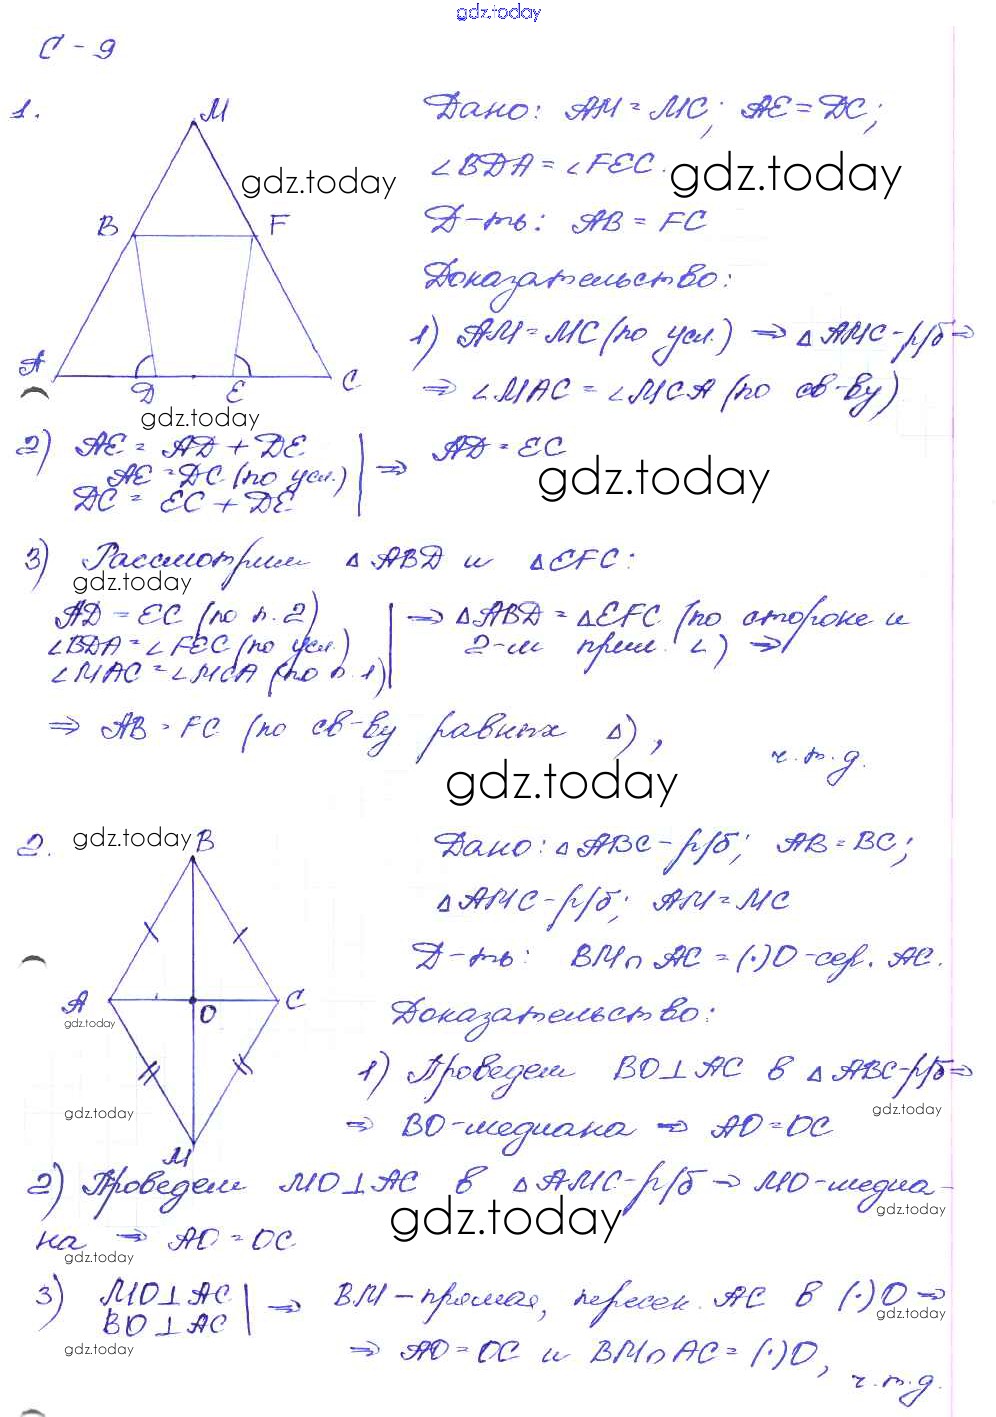 gdz.today
С - 9
1.
M
gdz.today
B
F
A
D
E
C
gdz.today
Дано: AM = MC; AE = DC;
∠BDA = ∠FEC.
gdz.today
Д-ть: AB = FC
Доказательство:
1) AM = MC (по усл.) ⇒ △ AMC - р/б ⇒
⇒ ∠MAC = ∠MCA (по св-ву)
2) AE = AD + DE
AE = DC (по усл.)
DC = EC + DE
⇒ AD = EC
gdz.today
3) Рассмотрим △ ABD и △ EFC:
gdz.today
AD = EC (по п. 2)
∠BDA = ∠FEC (по усл.)
∠MAC = ∠MCA (по п. 1)
⇒ △ABD = △EFC (по стороне и
2-м прил. ∠) ⇒
⇒ AB = FC (по св-ву равных △),
ч.т.д.
gdz.today
2.
gdz.today
B
A
C
O
M
gdz.today
gdz.today
Дано: △ ABC - р/б; AB = BC;
△ AMC - р/б; AM = MC
Д-ть: BM ∩ AC = (·)O - сер. AC.
Доказательство:
1) Проведем BO ⊥ AC в △ ABC - р/б ⇒
gdz.today
⇒ BO - медиана ⇒ AO = OC
2) Проведем MO ⊥ AC в △ AMC - р/б ⇒ MO - медиа-
gdz.today
gdz.today
на ⇒ AO = OC
gdz.today
3) MO ⊥ AC
BO ⊥ AC
⇒ BM - прямая, пересек. AC в (·) O ⇒
gdz.today
gdz.today
⇒ AO = OC и BM ∩ AC = (·) O,
ч.т.д.